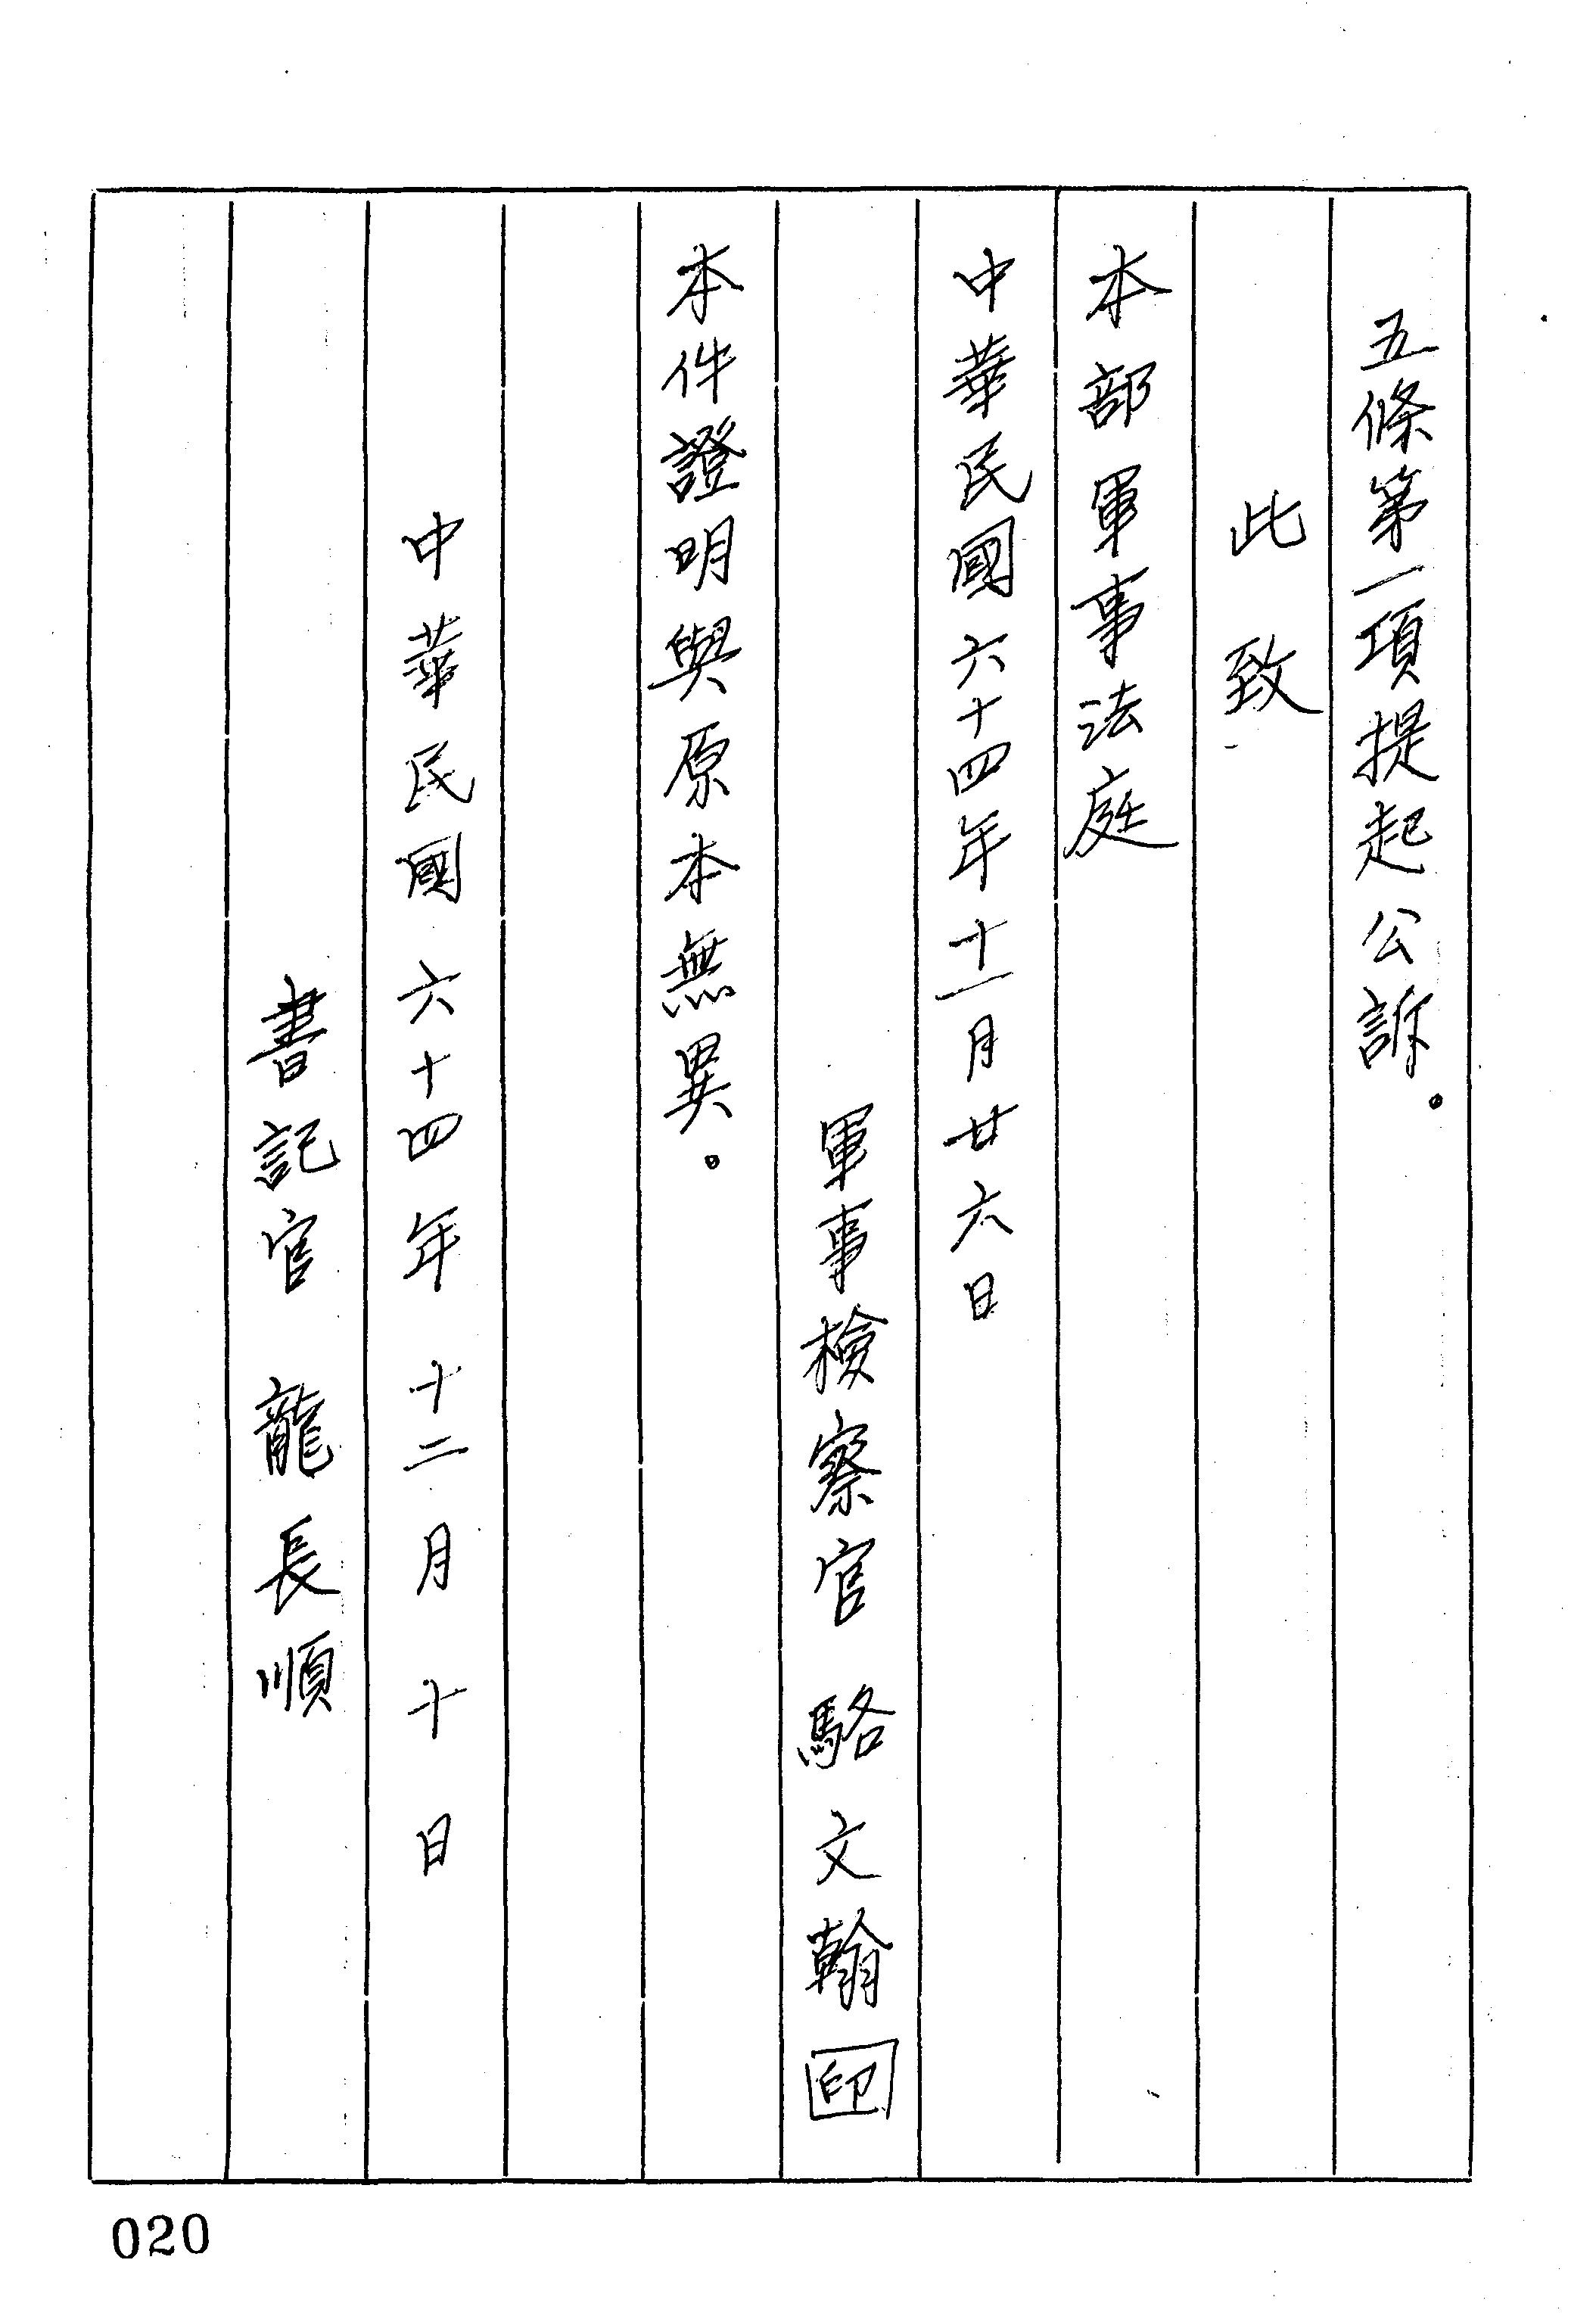 五條第一項提起公訴。
此致
本部軍事法庭
中華民國六十四年十一月廿六日
軍事檢察官 駱文翰 印
本件證明與原本無異。
中華民國六十四年十二月十日
書記官 龍長順
020